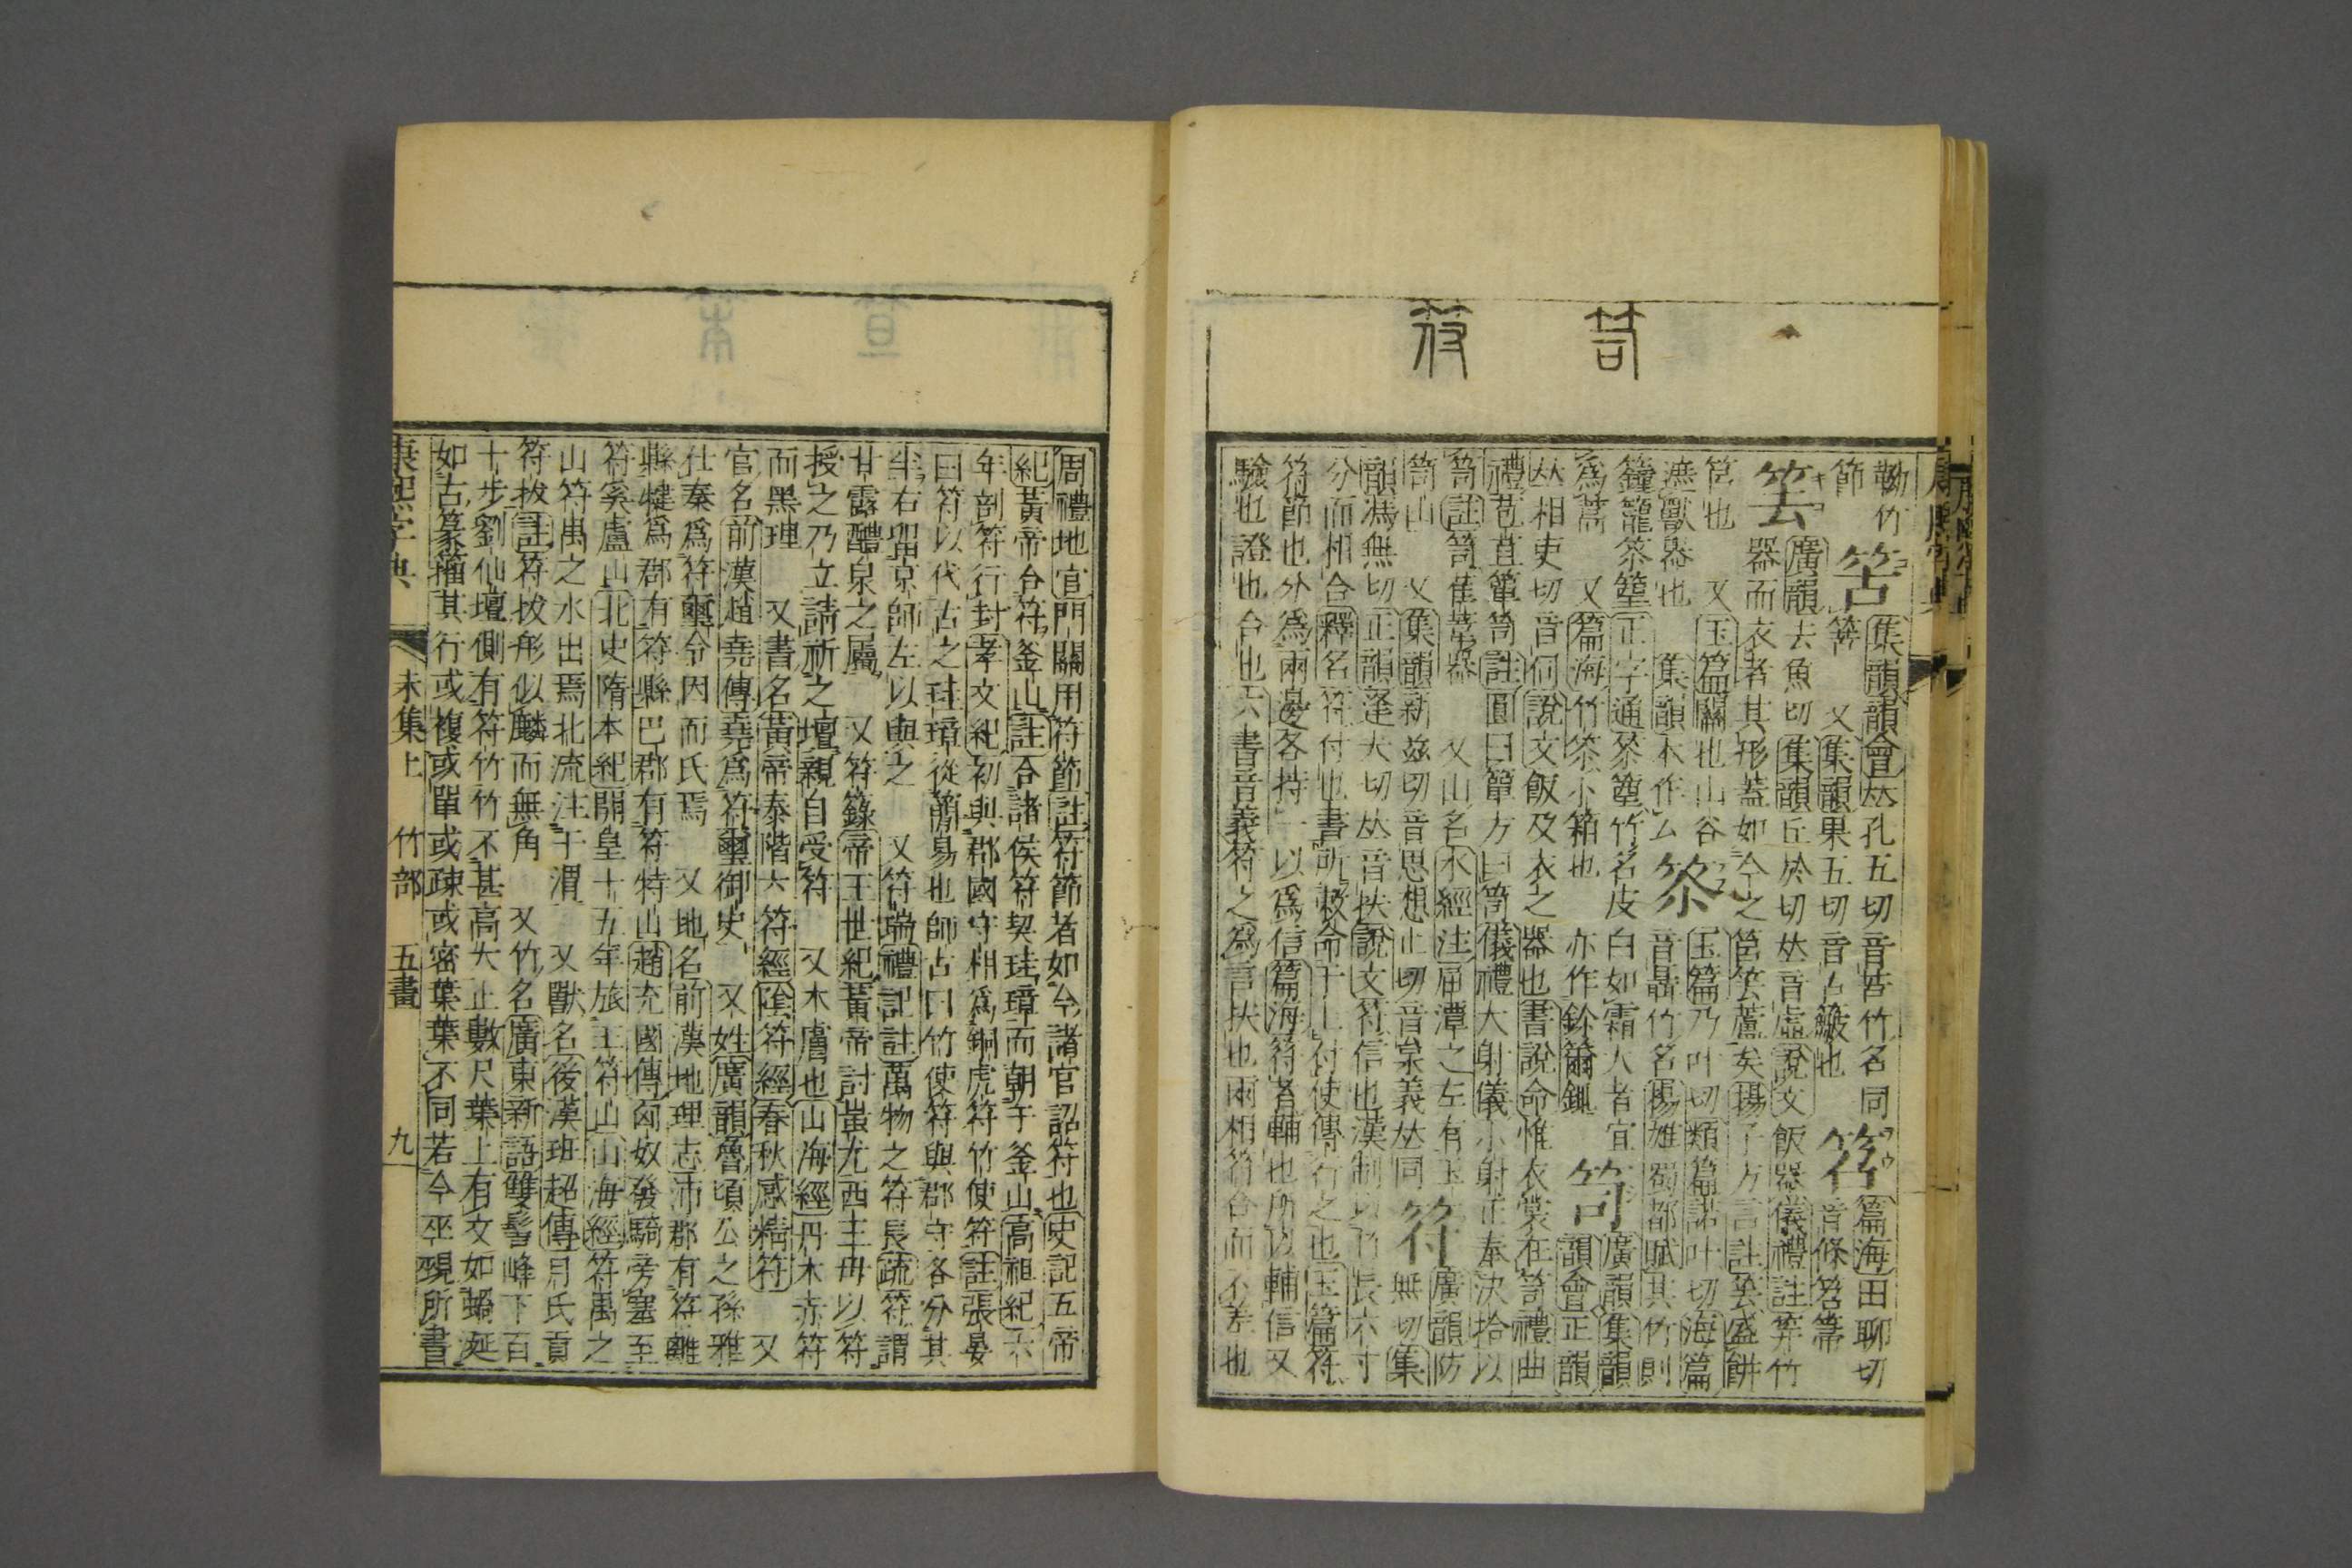 勒竹 集韻韻會𠀤孔五切音苦竹名同 笤 篇海田聊切
節 又集韻果五切音古䉉也 音條笤箒
廣韻去魚切集韻丘於切𠀤音虛說文飯器儀禮註笲竹
器而衣者其形蓋如今之筥 蘆矣揚子方言註 盛餅
筥也 又玉篇關也山谷 玉篇乃叶切類篇諾叶切海篇
遮獸器也 集韻本作厶 音聶竹名揚雄蜀都賦其竹則
鐘籠 篁正字通 篁竹名皮白如霜大者宜 笥 廣韻集韻
為篙 又篇海竹 小箱也 亦作 韻會正韻
𠀤相吏切音伺說文飯及衣之器也書說命惟衣裳在笥禮曲
禮苞苴簞笥註圓曰簞方曰笥儀禮大射儀小射正奉決拾以
笥註笥萑葦器 又山名水經注屈潭之左有玉
笥山 又集韻新茲切音思想止切音枲義𠀤同 符 廣韻防
無切集
韻馮無切正韻逢夫切𠀤音扶說文符信也漢制以竹長六寸
分而相合釋名符付也書所敕命于上付使傳行之也玉篇符
符節也外為兩邊各持一以為信篇海符者輔也所以輔信又
驗也證也合也六書音義符之為言扶也兩相符合而不差也
周禮地官門關用符節註符節者如今諸官詔符也史記五帝
紀黃帝合符釜山註合諸侯符契珪璋而朝于釜山高祖紀六
年剖符行封孝文紀初與郡國守相為銅虎符竹使符註張晏
曰符以代古之珪璋從簡易也師古曰竹使符與郡守各分其
半右留京師左以與之 又符瑞禮記註萬物之符長疏符謂
甘露醴泉之屬 又符籙帝王世紀黃帝討蚩尤西王母以符
授之乃立請祈之壇親自受符 又木膚也山海經丹木赤符
而黑理 又書名黃帝泰階六符經陰符經春秋感精符 又
官名前漢趙堯傳堯為符璽御史 又姓廣韻魯頃公之孫雅
仕秦為符璽令因而氏焉 又地名前漢地理志沛郡有符離
縣犍為郡有符縣巴郡有符特山趙充國傳匈奴發騎旁塞至
符奚盧山北史隋本紀開皇十五年旅王符山山海經符禺之
山符禺之水出焉北流注于渭 又獸名後漢班超傳月氏貢
符拔註符拔形似麟而無角 又竹名廣東新語雙髻峰下百
十步劉仙壇側有符竹竹不甚高大止數尺葉上有文如蝸涎
如古篆籀其行或複或單或疎或密葉葉不同若今巫覡所書
康熙字典 未集上 竹部 五畫 九